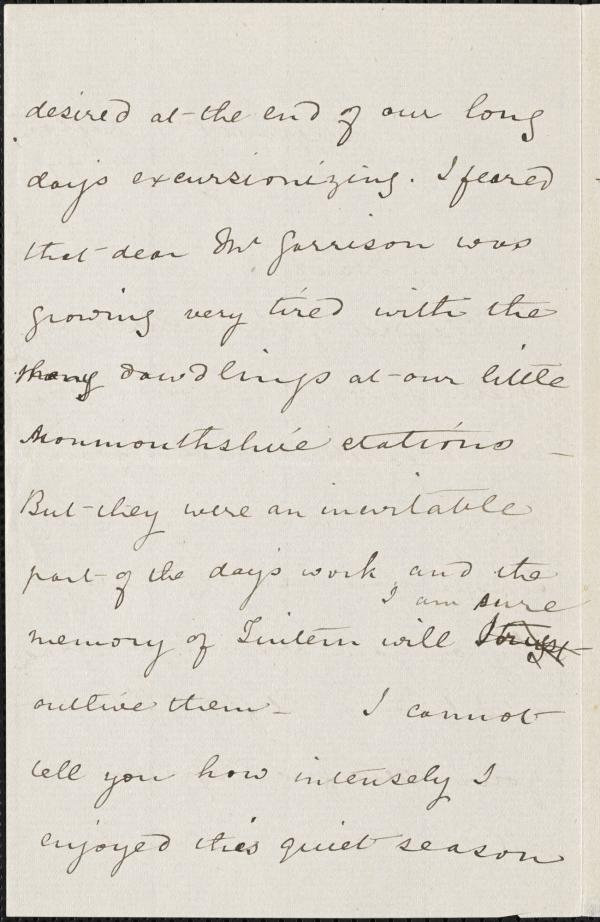 desired at the end of our long
days excursionizing. I feared
that dear Mr Garrison was
growing very tired with the
many dawdlings at our little
Monmouthshire stations –
But they were an inevitable
part of the day's work and the
I am sure
memory of Tintern will I trust
outlive them – I cannot
tell you how intensely I
enjoyed this quiet season